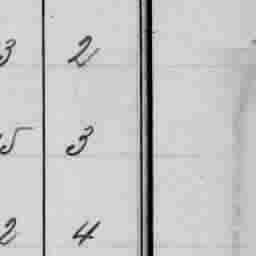 3 2
5 3
2 4